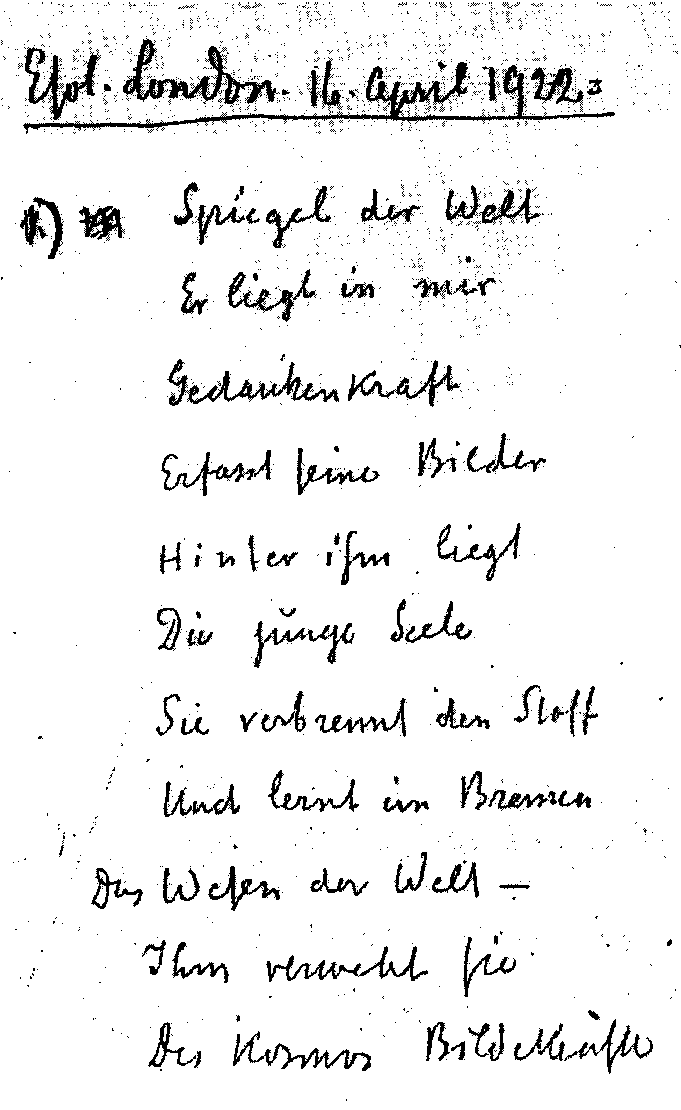 Esot. London. 16. April 1922:
1.) Spiegel der Welt
Er liegt in mir
Gedankenkraft
Erfasst seine Bilder
Hinter ihm liegt
Die junge Seele
Sie verbrennt den Stoff
Und lernt im Brennen
Das Wesen der Welt —
Ihm verwebt sie
Des Kosmos Bildekräfte